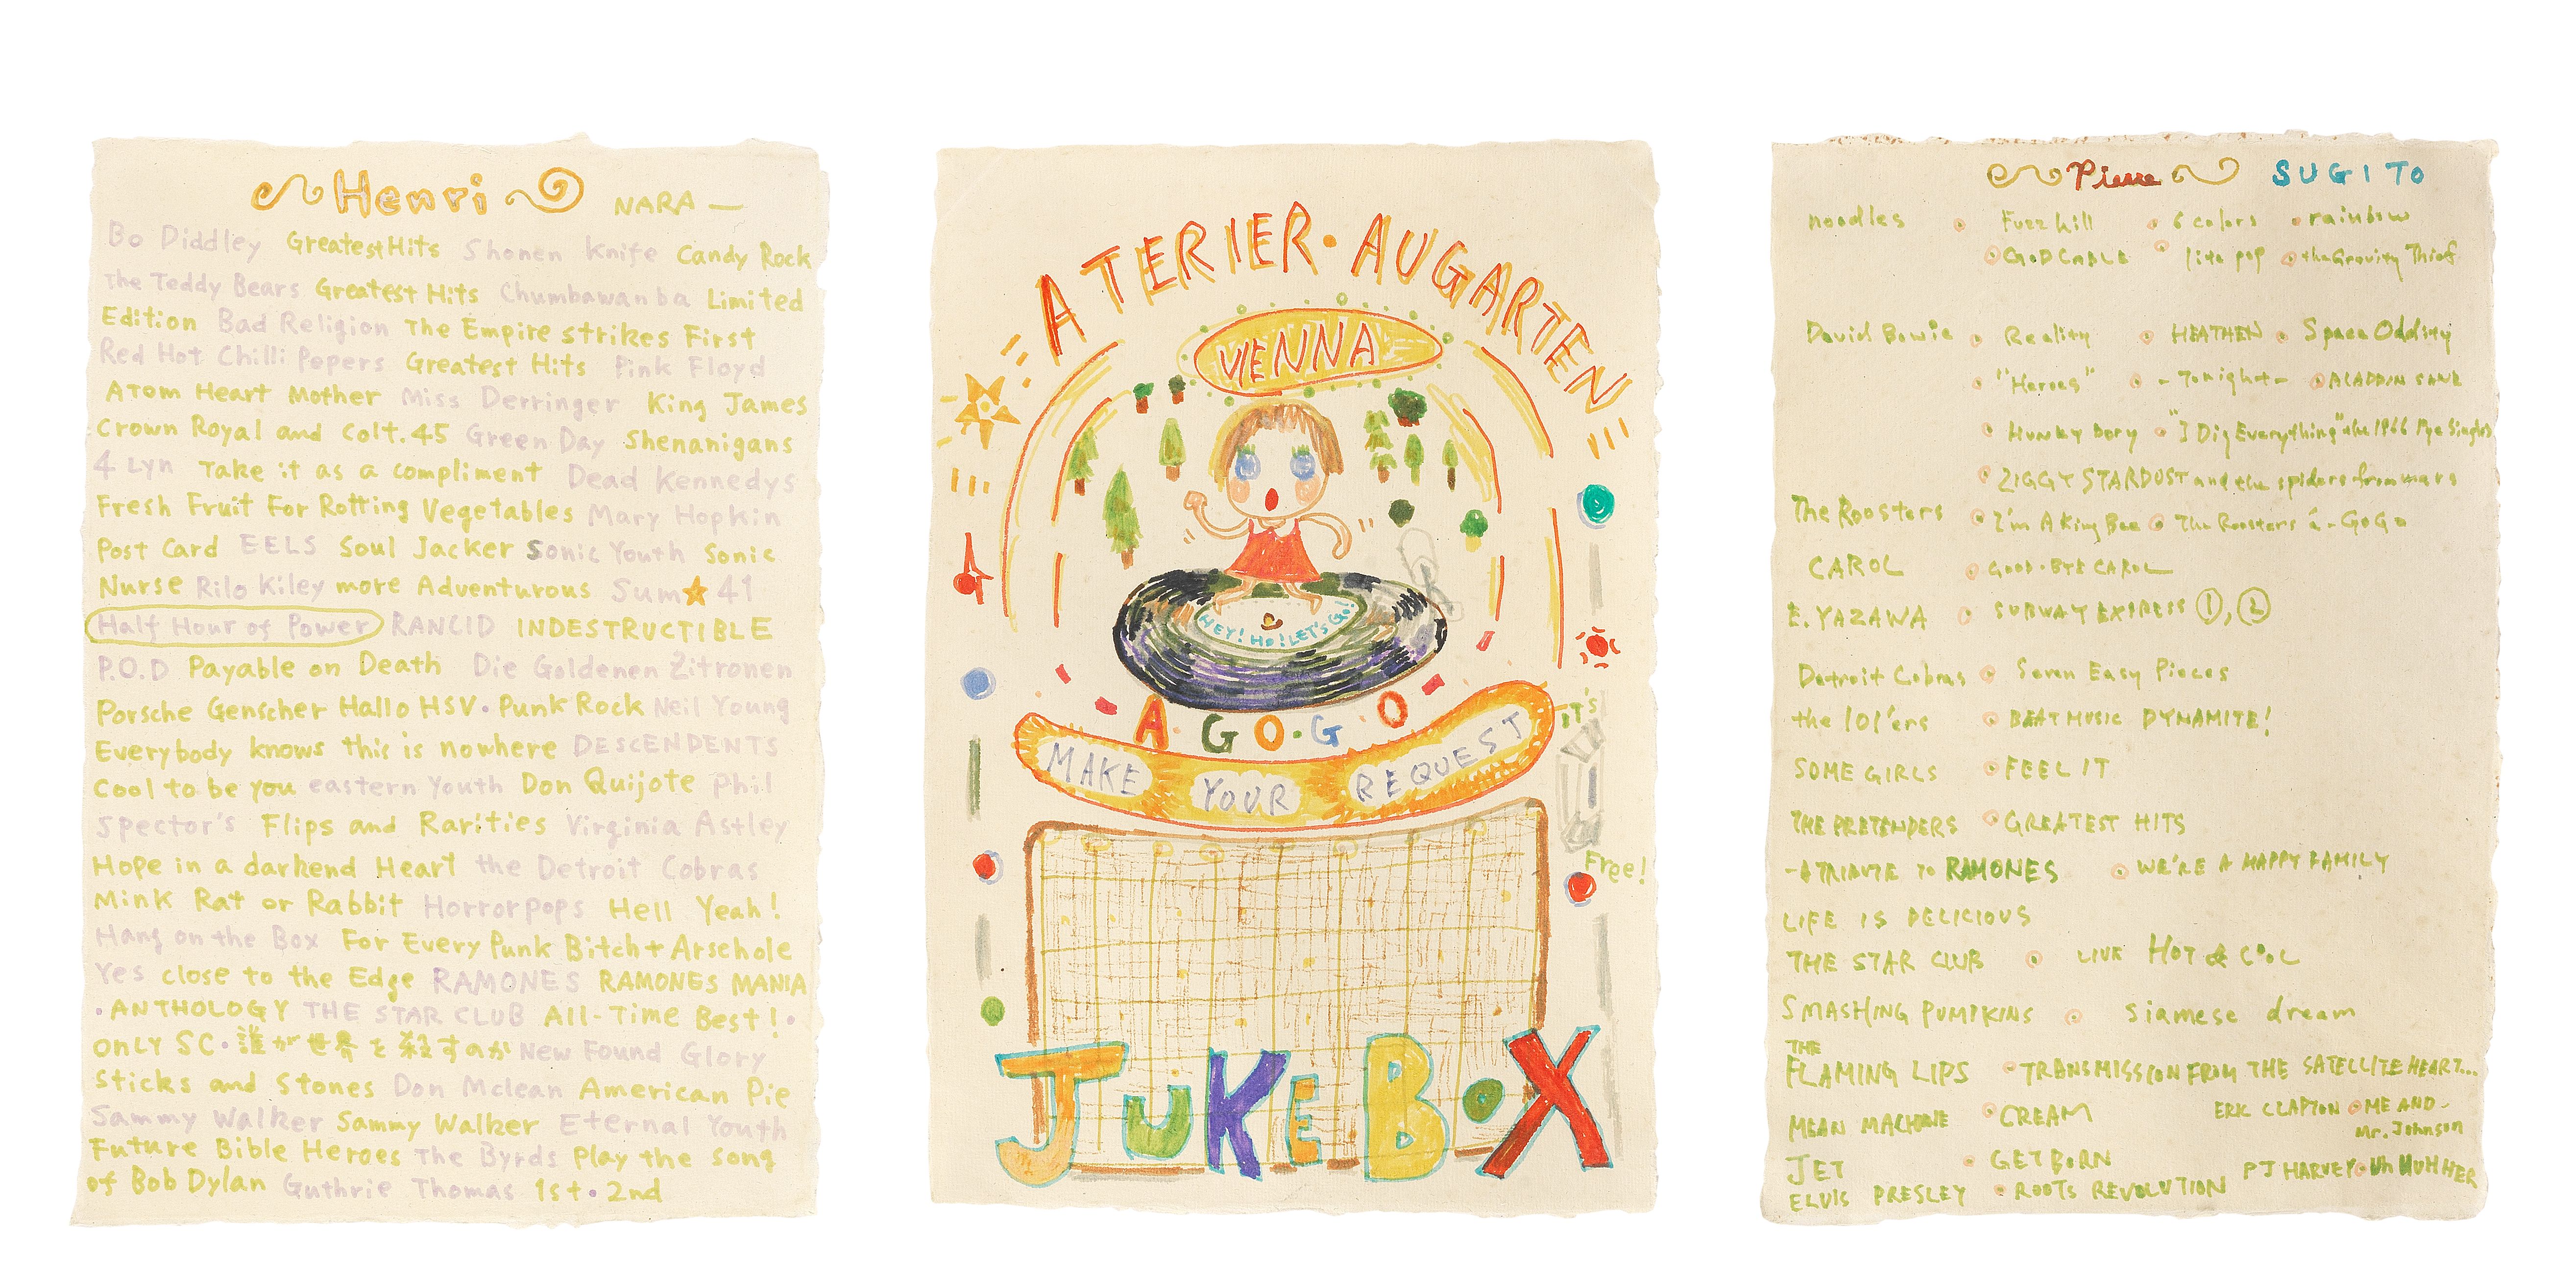 Henri NARA —
Bo Diddley Greatest Hits Shonen Knife Candy Rock
The Teddy Bears Greatest Hits Chumbawanba Limited
Edition Bad Religion The Empire strikes First
Red Hot Chilli Pepers Greatest Hits Pink Floyd
Atom Heart Mother Miss Derringer King James
Crown Royal and Colt.45 Green Day Shenanigans
4 Lyn Take it as a compliment Dead Kennedys
Fresh Fruit For Rotting Vegetables Mary Hopkin
Post Card EELS Soul Jacker Sonic Youth Sonic
Nurse Rilo Kiley more Adventurous Sum★41
Half Hour of Power RANCID INDESTRUCTIBLE
P.O.D Payable on Death Die Goldenen Zitronen
Porsche Genscher Hallo HSV・Punk Rock Neil Young
Everybody knows this is nowhere DESCENDENTS
Cool to be you eastern Youth Don Quijote Phil
Spector's Flips and Rarities Virginia Astley
Hope in a darkend Heart the Detroit Cobras
Mink Rat or Rabbit Horrorpops Hell Yeah!
Hang on the Box For Every Punk Bitch + Arsehole
Yes close to the Edge RAMONES RAMONES MANIA
・ANTHOLOGY THE STAR CLUB All-Time Best!・
ONLY SC・誰が世界を殺すのか New Found Glory
Sticks and Stones Don Mclean American Pie
Sammy Walker Sammy Walker Eternal Youth
Future Bible Heroes The Byrds Play the song
of Bob Dylan Guthrie Thomas 1st・2nd
ATERIER・AUGARTEN
VIENNA
HEY! HO! LET'S GO!
A・GO・G・O
MAKE YOUR REQUEST
IT'S
Free!
JUKEBOX
Pierre SUGITO
noodles Fuzz hill 6 colors rainbow
GOD CABLE lite pop the Gravity Thief
David Bowie Reality HEATHEN Space Oddity
"Heroes" -Tonight- ALADDIN SANE
Hunky Dory "I Dig Everything" the 1966 Pye Singles
ZIGGY STARDUST and the spiders from mars
The Roosters I'm A King Bee The Roosters a-GoGo
CAROL GOOD・BYE CAROL
E.YAZAWA SUBWAY EXPRESS ①,②
Detroit Cobras Seven Easy Pieces
the 101'ers BEAT MUSIC DYNAMITE!
SOME GIRLS FEEL IT
THE PRETENDERS GREATEST HITS
-A TRIBUTE TO RAMONES WE'RE A HAPPY FAMILY
LIFE IS DELICIOUS
THE STAR CLUB LIVE HOT & COOL
SMASHING PUMPKINS Siamese dream
THE
FLAMING LIPS TRANSMISSION FROM THE SATELLITE HEART...
MEAN MACHINE CREAM ERIC CLAPTON ME AND-
Mr. Johnson
JET GET BORN PJ HARVEY Uh HUH HER
ELVIS PRESLEY ROOTS REVOLUTION